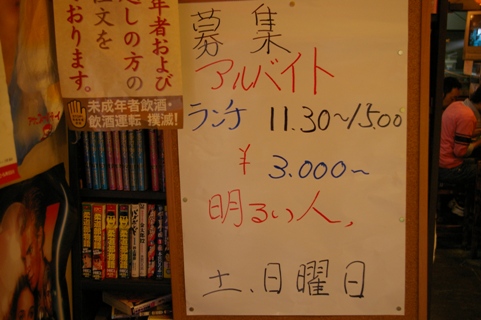 年者および
しの方の
注文を
おります。
未成年者飲酒・
飲酒運転 撲滅!
募集
アルバイト
ランチ 11.30~15.00
¥ 3.000~
明るい人、
土、日曜日